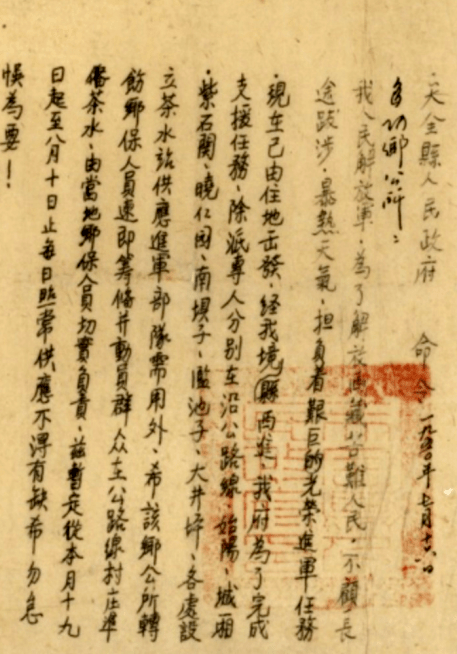 天全縣人民政府 命令 一九五〇年七月十六日
各鄉公所：
我人民解放軍，為了解放西藏苦難人民，不顧長
途跋涉，暴熱天氣，担負着艱巨的光榮進軍任務
，現在已由住地出發，經我境縣西進，我府為了完成
支援任務，除派專人分別在沿公路線始陽、城厢
、紫石関、曉仁园、南壩子、滥池子、大井坪、各處設
立茶水站供應進軍部隊需用外，希該鄉公所轉
飭鄉保人員速即籌俻并動員群众在公路線村庄準
俻茶水，由當地鄉保人員切實負責，茲暫定從本月十九
日起至八月十日止每日照常供應不淂有缺希勿怠
悞為要！